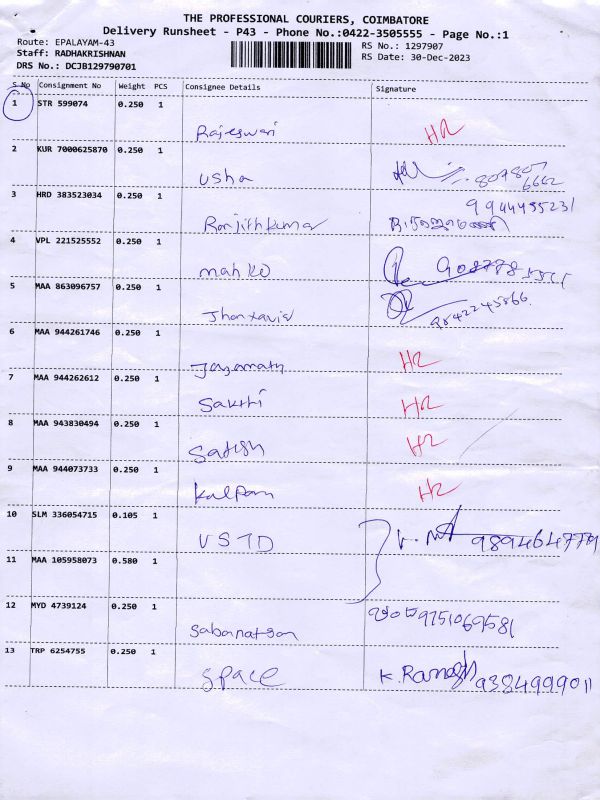 THE PROFESSIONAL COURIERS, COIMBATORE
Delivery Runsheet - P43 - Phone No.:0422-3505555 - Page No.:1
Route: EPALAYAM-43
RS No.: 1297907
Staff: RADHAKRISHNAN
RS Date: 30-Dec-2023
DRS No.: DCJB129790701
S No Consignment No Weight PCS Consignee Details Signature
1 STR 599074 0.250 1
Rajeswari HR
2 KUR 7000625870 0.250 1
Usha 807807
6662
3 HRD 383523034 0.250 1
Ranjithkumar
4 VPL 221525552 0.250 1
5 MAA 863096757 0.250 1
9842245866
6 MAA 944261746 0.250 1
HR
7 MAA 944262612 0.250 1
Sakthi HR
8 MAA 943830494 0.250 1
Satish HR
9 MAA 944073733 0.250 1
HR
10 SLM 336054715 0.105 1
VSTD
11 MAA 105958073 0.580 1
12 MYD 4739124 0.250 1
9751069581
13 TRP 6254755 0.250 1
Space K. Ramesh 9384999011